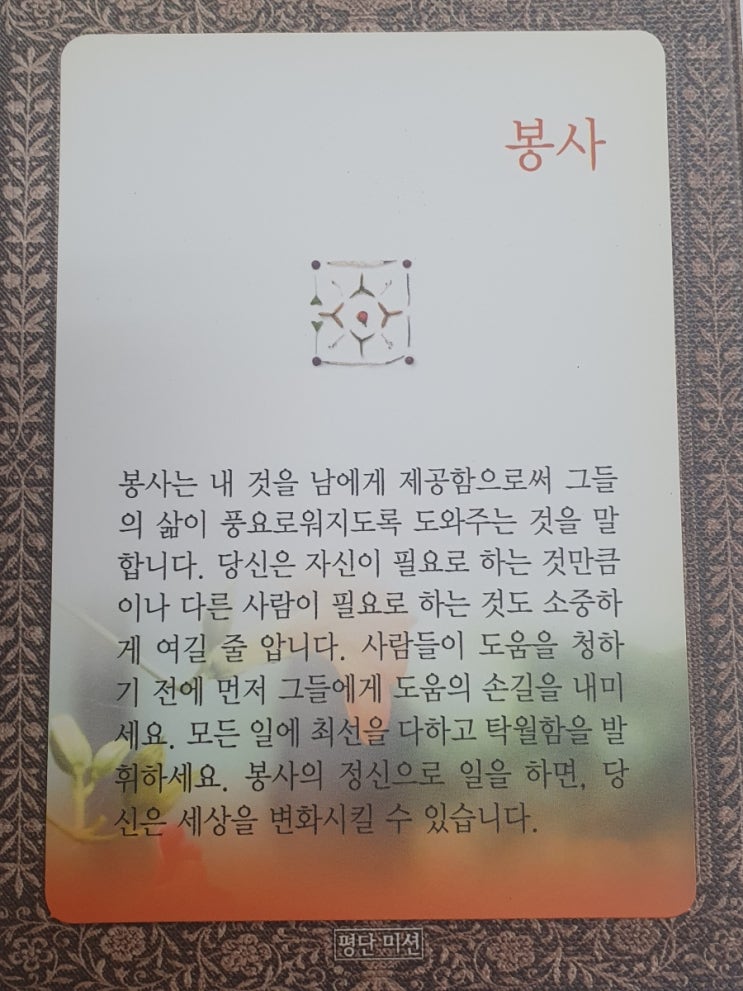 봉사
봉사는 내 것을 남에게 제공함으로써 그들
의 삶이 풍요로워지도록 도와주는 것을 말
합니다. 당신은 자신이 필요로 하는 것만큼
이나 다른 사람이 필요로 하는 것도 소중하
게 여길 줄 압니다. 사람들이 도움을 청하
기 전에 먼저 그들에게 도움의 손길을 내미
세요. 모든 일에 최선을 다하고 탁월함을 발
휘하세요. 봉사의 정신으로 일을 하면, 당
신은 세상을 변화시킬 수 있습니다.
평단 미션